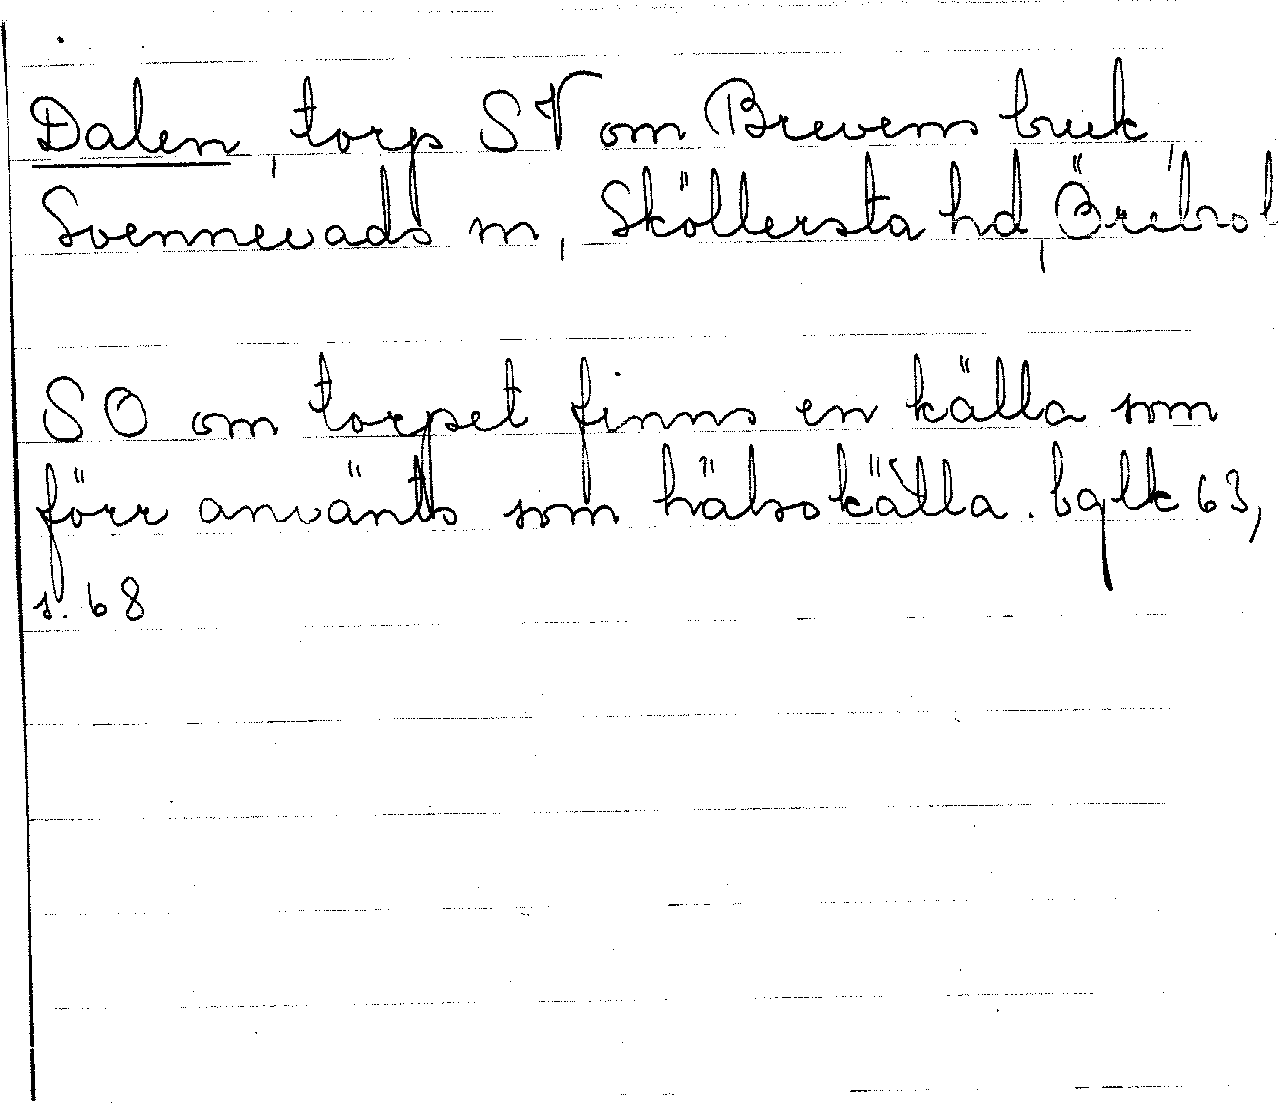 Dalen, torp SV om Brevens bruk,
Svennevads sn, Sköllersta hd, Örebro l
SO om torpet finns en källa som
förr använts som hälsokälla.
s. 68